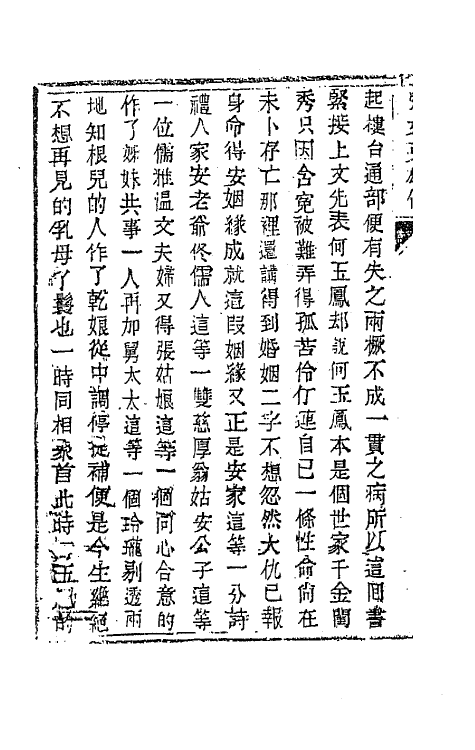 起樓台通部便有失之兩橛不成一貫之病所以這回書
緊接上文先表何玉鳳却說何玉鳳本是個世家千金閨
秀只因含寃被難弄得孤苦伶仃連自己一條性命尙在
未卜存亡那裡還講得到婚姻二字不想忽然大仇已報
身命得安姻緣成就這叚姻緣又正是安家這等一分詩
禮人家安老爺佟儒人這等一雙慈厚翁姑安公子這等
一位儒雅溫文夫婦又得張姑娘這等一個同心合意的
作了姊妹共事一人再加舅太太這等一個玲瓏剔透兩
地知根兒的人作了乾娘從中調停提補便是今生絶絶
不想再見的乳母丫鬟也一時同相聚首此時的